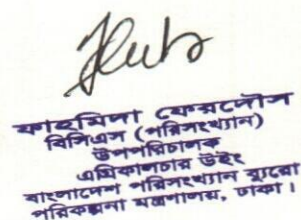 ফাহমিদা ফেরদৌস
বিসিএস (পরিসংখ্যান)
উপপরিচালক
এগ্রিকালচার উইং
বাংলাদেশ পরিসংখ্যান ব্যুরো
পরিকল্পনা মন্ত্রণালয়, ঢাকা।